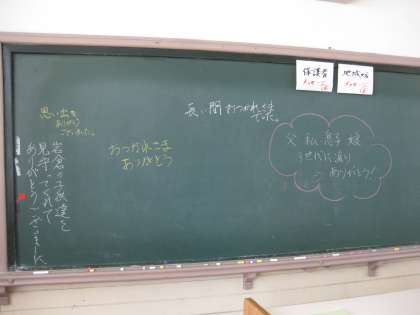 保護者
地域の方
長い間おつかれさま
でした。
父 私 息子 娘
3世代に渡り
ありがとう!
思い出を
ありがとう
ございました。
おつかれさま
ありがとう
岩倉の子供達を
見守ってくれて
ありがとうございました